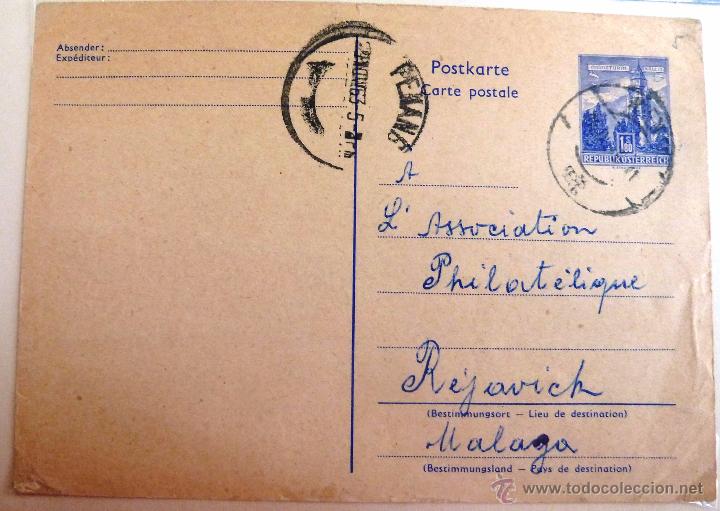 Absender:
Expéditeur:
PENANG
Postkarte
Carte postale
REPUBLIK ÖSTERREICH
A
L'Association
Philatélique
Réjavick
(Bestimmungsort – Lieu de destination)
Malaga
(Bestimmungsland – Pays de destination)
www.todocoleccion.net